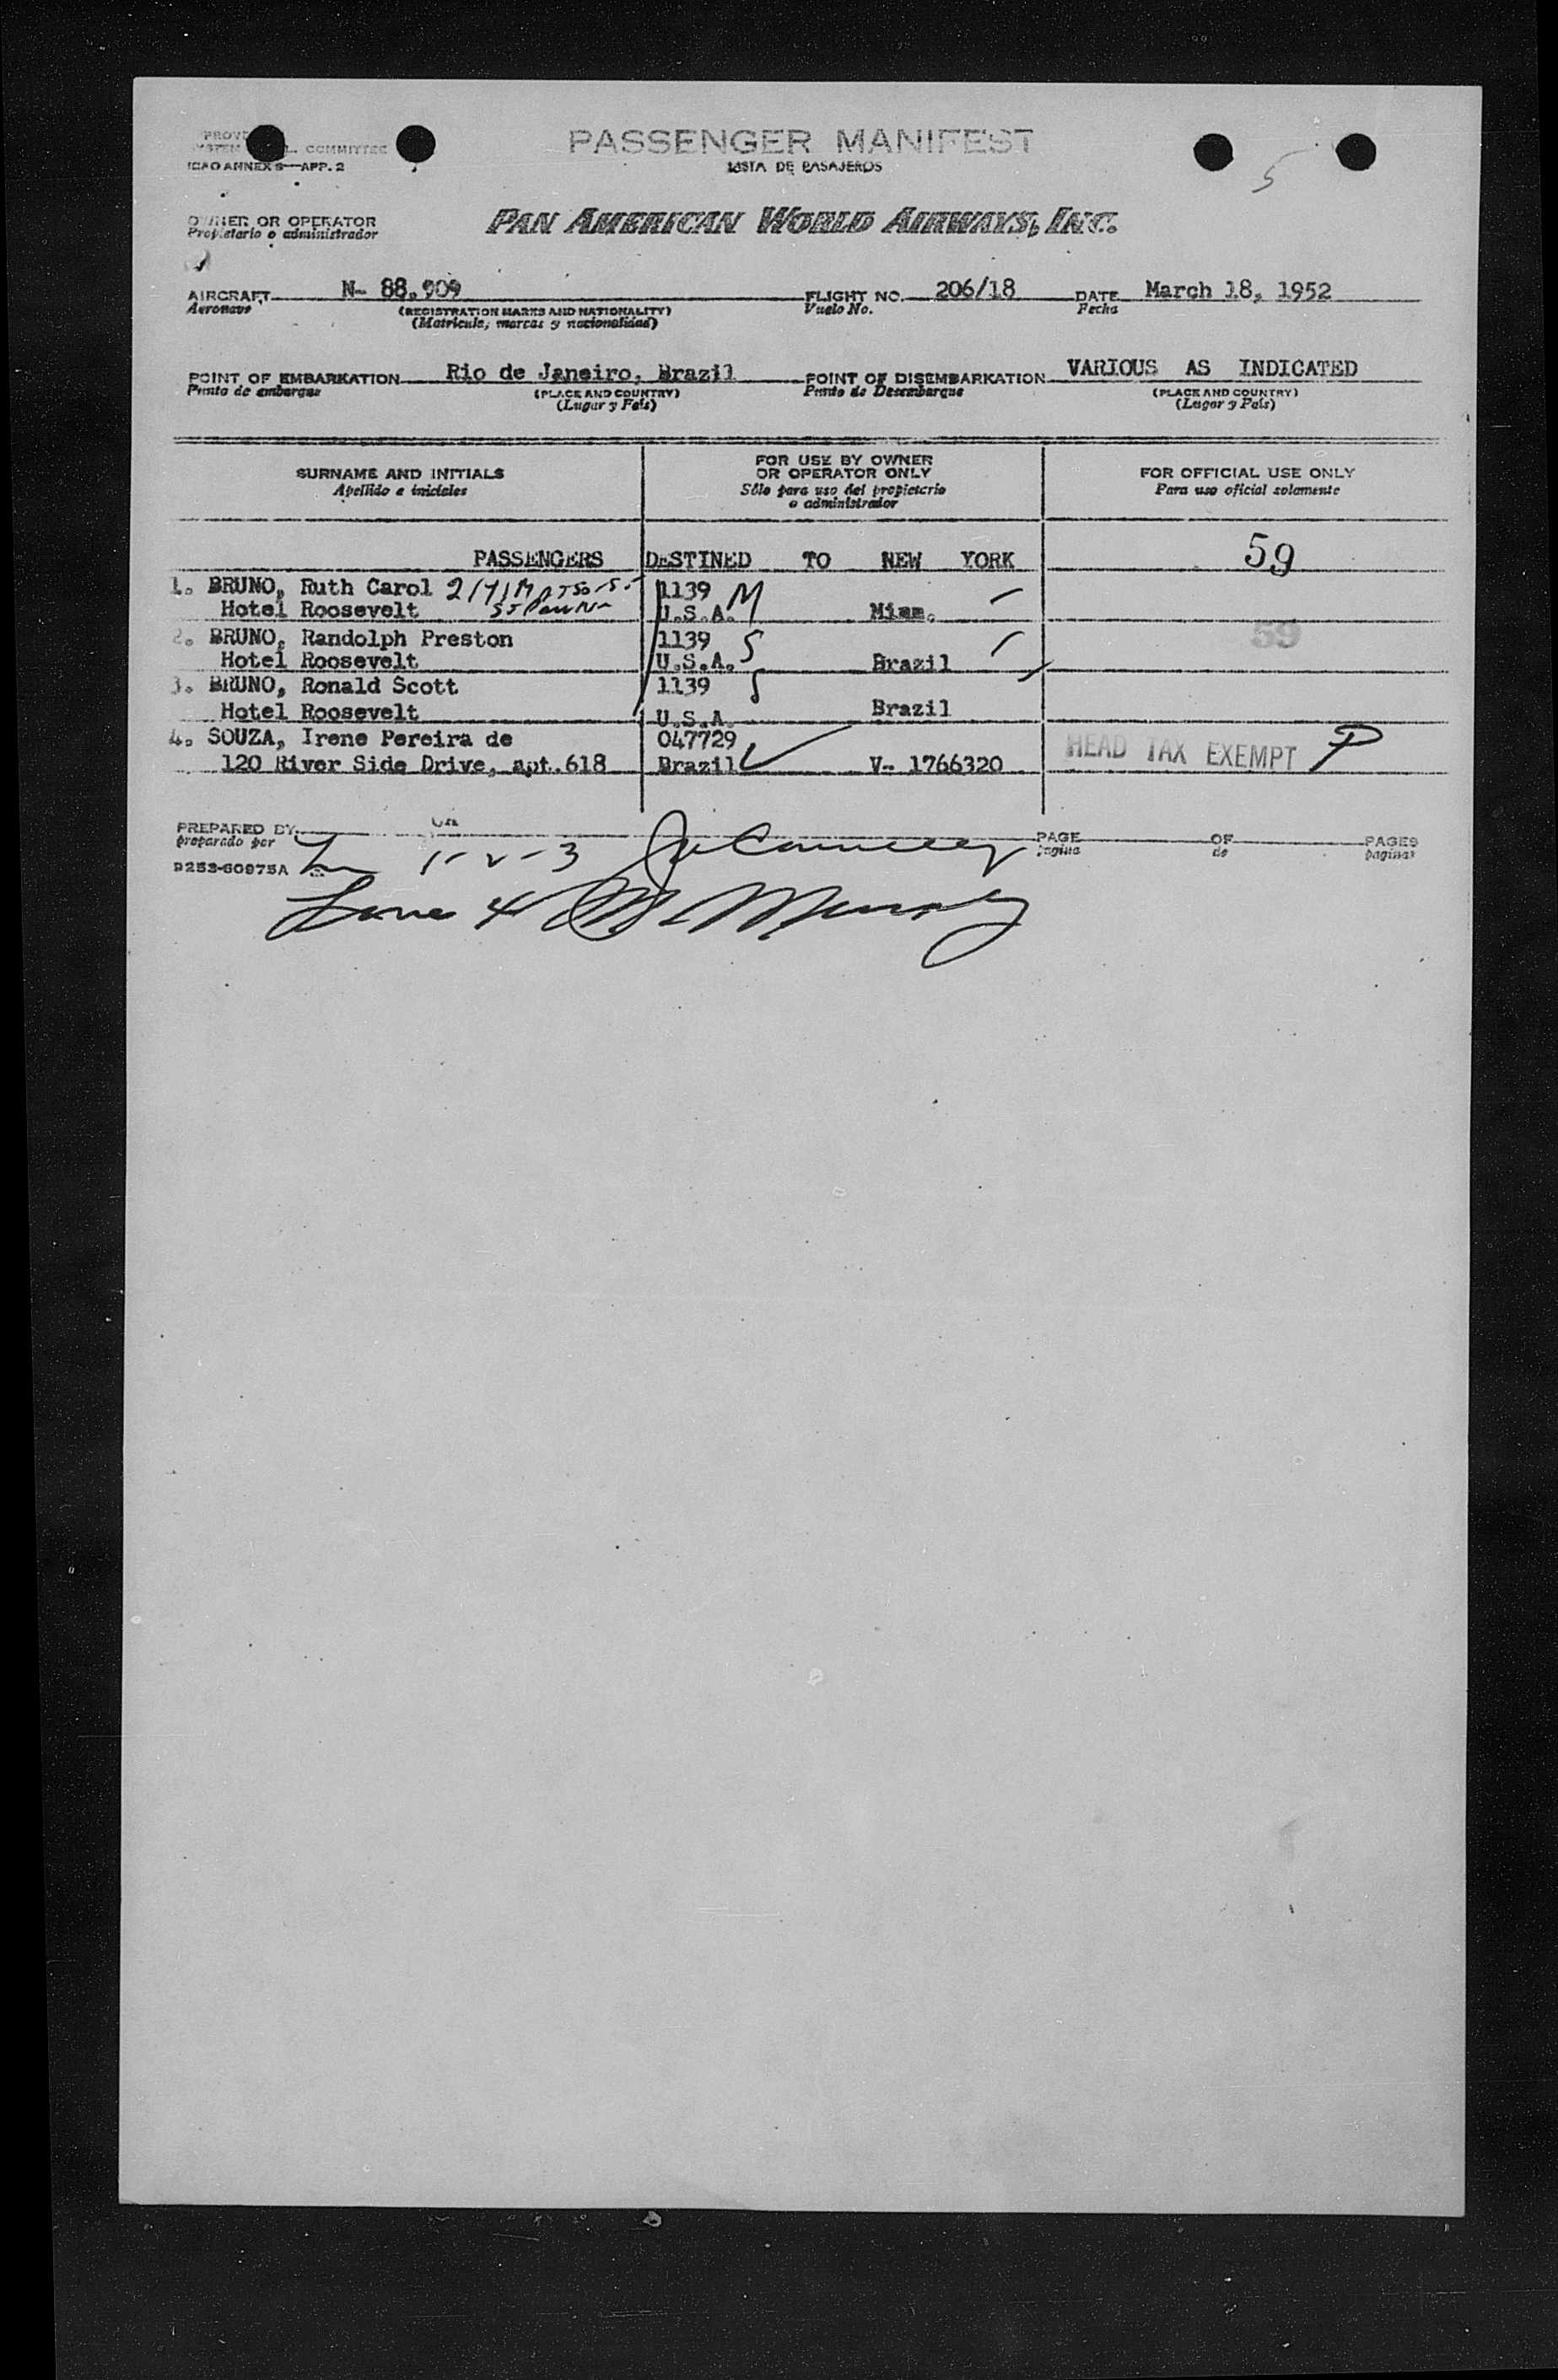 PASSENGER MANIFEST
LISTA DE PASAJEROS
COMMITTEE
ICAO ANNEX 9—APP. 2
5
OWNER OR OPERATOR
Propietario o administrador
PAN AMERICAN WORLD AIRWAYS, INC.
AIRCRAFT N- 88.909 FLIGHT NO. 206/18 DATE March 18, 1952
Aeronave (REGISTRATION MARKS AND NATIONALITY) Vuelo No. Fecha
(Matricula, marcas y nacionalidad)
POINT OF EMBARKATION Rio de Janeiro, Brazil POINT OF DISEMBARKATION VARIOUS AS INDICATED
Punto de embarque (PLACE AND COUNTRY) Punto de Desembarque (PLACE AND COUNTRY)
(Lugar y País) (Lugar y País)
SURNAME AND INITIALS
Apellido e iniciales
FOR USE BY OWNER
OR OPERATOR ONLY
Sólo para uso del propietario
o administrador
FOR OFFICIAL USE ONLY
Para uso oficial solamente
PASSENGERS DESTINED TO NEW YORK 59
1. BRUNO, Ruth Carol 1139 M
Hotel Roosevelt U.S.A. Minn.
2. BRUNO, Randolph Preston 1139 S 59
Hotel Roosevelt U.S.A. Brazil
3. BRUNO, Ronald Scott 1139 S
Hotel Roosevelt U.S.A. Brazil
4. SOUZA, Irene Pereira de 047729 HEAD TAX EXEMPT P
120 River Side Drive, apt.618 Brazil V- 1766320
PREPARED BY PAGE OF PAGES
preparado por pagina de paginas
9253-60975A 1-2-3
Line 4